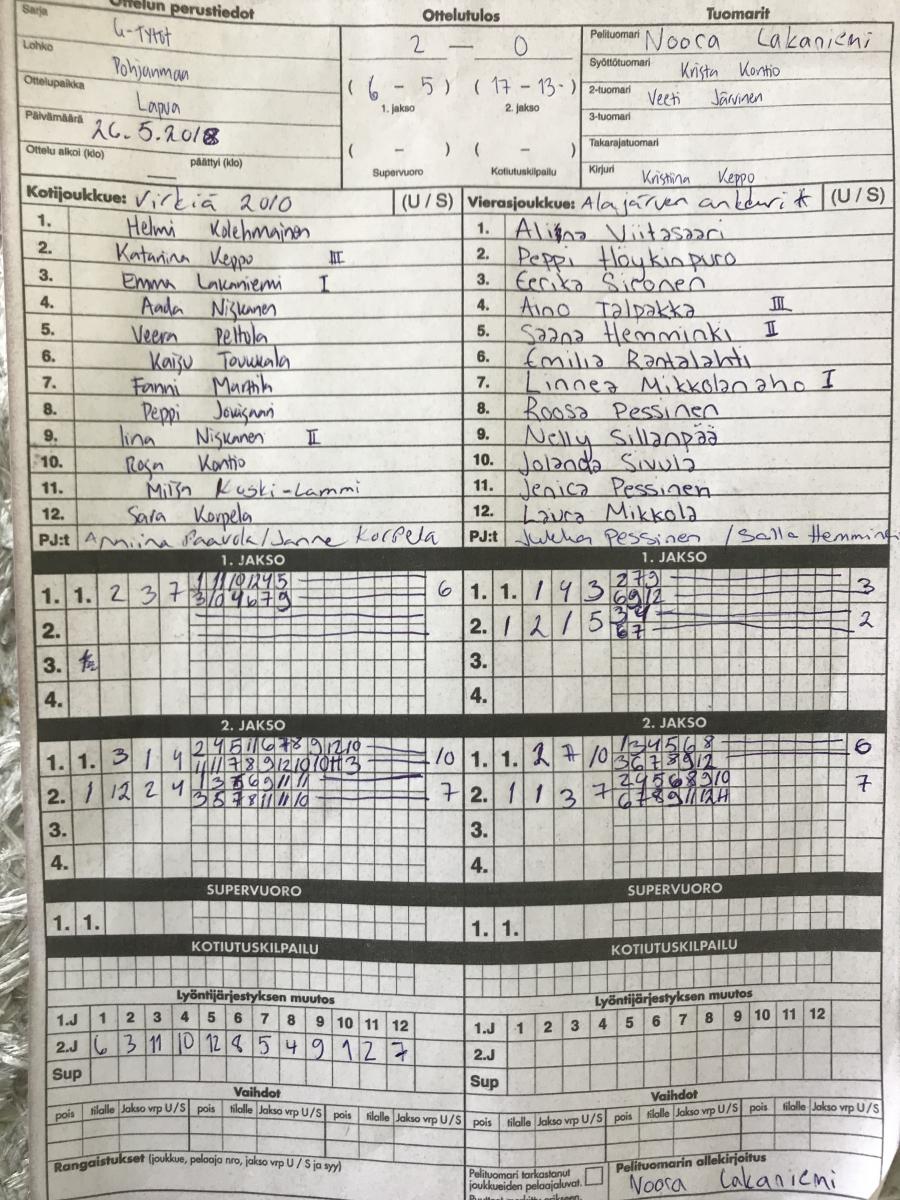 Sarja
Ottelun perustiedot
G-Tytöt
Lohko
Pohjanmaa
Ottelupaikka
Lapua
Päivämäärä 26.5.2018
Ottelu alkoi (klo) päättyi (klo)
Ottelutulos
2 — 0
( 6 - 5 ) ( 17 - 13 )
1. jakso 2. jakso
( - ) ( - )
Supervuoro Kotiutuskilpailu
Tuomarit
Pelituomari Noora Lakaniemi
Syöttötuomari Krista Kontio
2-tuomari Veeti Järvinen
3-tuomari
Takarajatuomari
Kirjuri Kristiina Keppo
Kotijoukkue: Virkiä 2010 (U / S)
1. Helmi Kolehmainen
2. Katariina Keppo III
3. Emma Lakaniemi I
4. Aada Niskanen
5. Veera Peltola
6. Kaisu
7. Fanni Marttila
8. Peppi
9. Iina Niskanen II
10. Rosa Kontio
11. Miisa Kuski-Lammi
12. Sara Korpela
PJ:t Anniina Paavola/Janne Korpela
Vierasjoukkue: Alajärven ankkurit (U / S)
1. Alina Viitasaari
2. Peppi Höykinpuro
3. Eerika Sironen
4. Aino Talpakka III
5. Saana Hemminki II
6. Emilia Rantalahti
7. Linnea Mikkolanaho I
8. Roosa Pessinen
9. Nelly Sillanpää
10. Jolanda Sivula
11. Jenica Pessinen
12. Laura Mikkola
PJ:t Jukka Pessinen / Salla Hemminki
1. JAKSO
1. 1. 2 3 7 6
2.
3.
4.
1. JAKSO
1. 1. 1 4 3 2 7 9 3
6 9 12
2. 1 2 1 5 3 4 2
6 7
3.
4.
2. JAKSO
1. 1. 3 1 4 2 4 5 11 6 7 8 9 12 10 10
2. 1 12 2 4 7
3 5 7 8 11 11 11 10
3.
4.
2. JAKSO
1. 1. 2 7 10 1 3 4 5 6 8 6
3 6 7 8 9 12
2. 1 1 3 7 2 4 5 6 8 9 10 7
6 7 8 9 11 12
3.
4.
SUPERVUORO
1. 1.
SUPERVUORO
1. 1.
KOTIUTUSKILPAILU
KOTIUTUSKILPAILU
Lyöntijärjestyksen muutos
1.J 1 2 3 4 5 6 7 8 9 10 11 12
2.J 6 3 11 10 12 8 5 4 9 1 2 7
Sup
Lyöntijärjestyksen muutos
1.J 1 2 3 4 5 6 7 8 9 10 11 12
2.J
Sup
Vaihdot
pois tilalle Jakso vrp U / S pois tilalle Jakso vrp U / S pois tilalle Jakso vrp U / S
Vaihdot
pois tilalle Jakso vrp U / S pois tilalle Jakso vrp U / S pois tilalle Jakso vrp U / S
Rangaistukset (joukkue, pelaaja nro, jakso vrp U / S ja syy)
Pelituomari tarkastanut
joukkueiden pelaajaluvat.
Pelituomarin allekirjoitus
Noora Lakaniemi